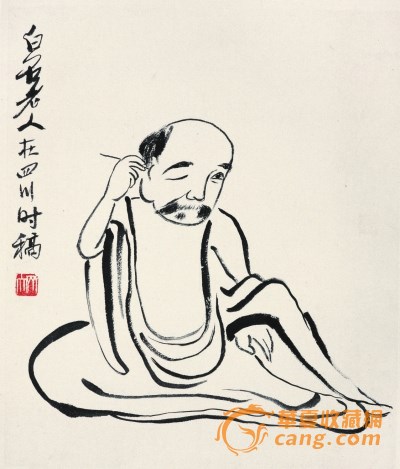 白石老人在四川时稿
華夏收藏網
cang.com